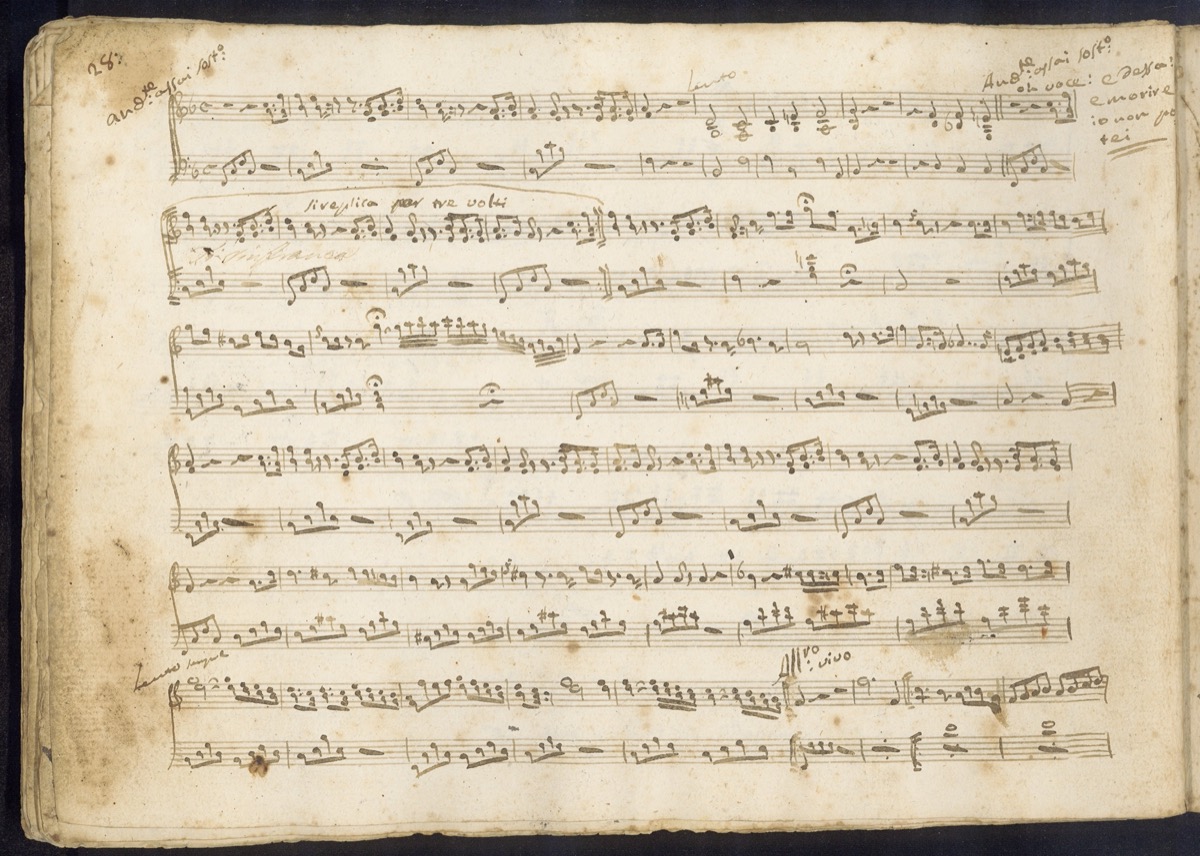 28:
And.te assai sost.o
Lento
And.te assai sost.o
oh voce: e dessa:
e morire
io non po
tei
si replica per tre volti
Lento
All.ro vivo